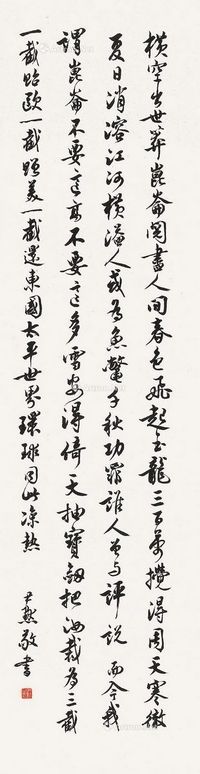 橫空出世莽崑崙閱盡人間春色飛起玉龍三百萬攪得周天寒徹
夏日消溶江河橫溢人或為魚鱉千秋功罪誰人曾与評說而今我
謂崑崙不要這高不要這多雪安得倚天抽寶劔把汝裁為三截
一截貽歐一截贈美一截還東國太平世界環球同此涼熱
尹默敬書